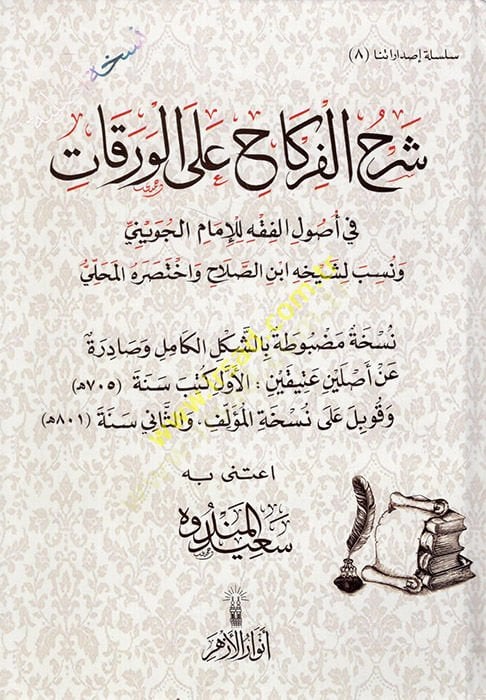 سلسلة إصداراتنا (٨)
نسخة
شَرْحُ الفِرْكَاحِ عَلَى الوَرَقَاتِ
في أُصُولِ الفِقْهِ لِلإِمَامِ الجُوَيْنِيِّ
وَنُسِبَ لِشَيْخِهِ ابْنِ الصَّلَاحِ وَاخْتَصَرَهُ المَحَلِّيُّ
نُسْخَةٌ مَضْبُوطَةٌ بِالشَّكْلِ الكَامِلِ وَصَادِرَةٌ
عَنْ أَصْلَيْنِ عَتِيقَيْنِ : الأَوَّلُ كُتِبَ سَنَةَ (٧٠٥هـ)
وَقُوبِلَ عَلَى نُسْخَةِ المُؤَلِّفِ، وَالثَّانِي سَنَةَ (٨٠١هـ)
اعتنى به
سَعِيد المَنْدُوه
أَنْوَارُ الأَزْهَر